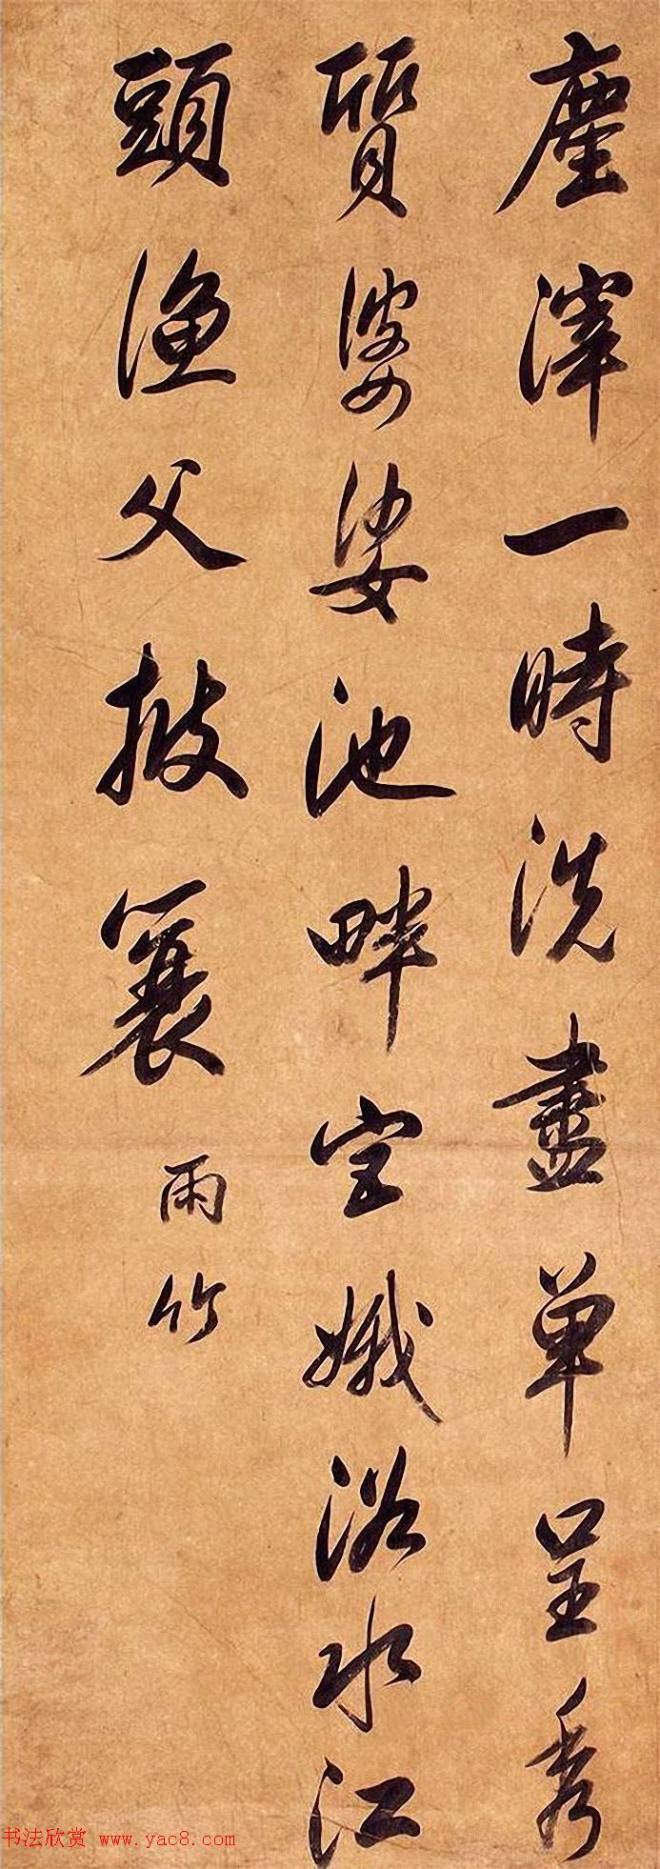 塵滓一時洗盡单呈秀
質婆娑池畔宫娥浴水江
頭漁父披蓑
雨竹
书法欣赏 www.yac8.com